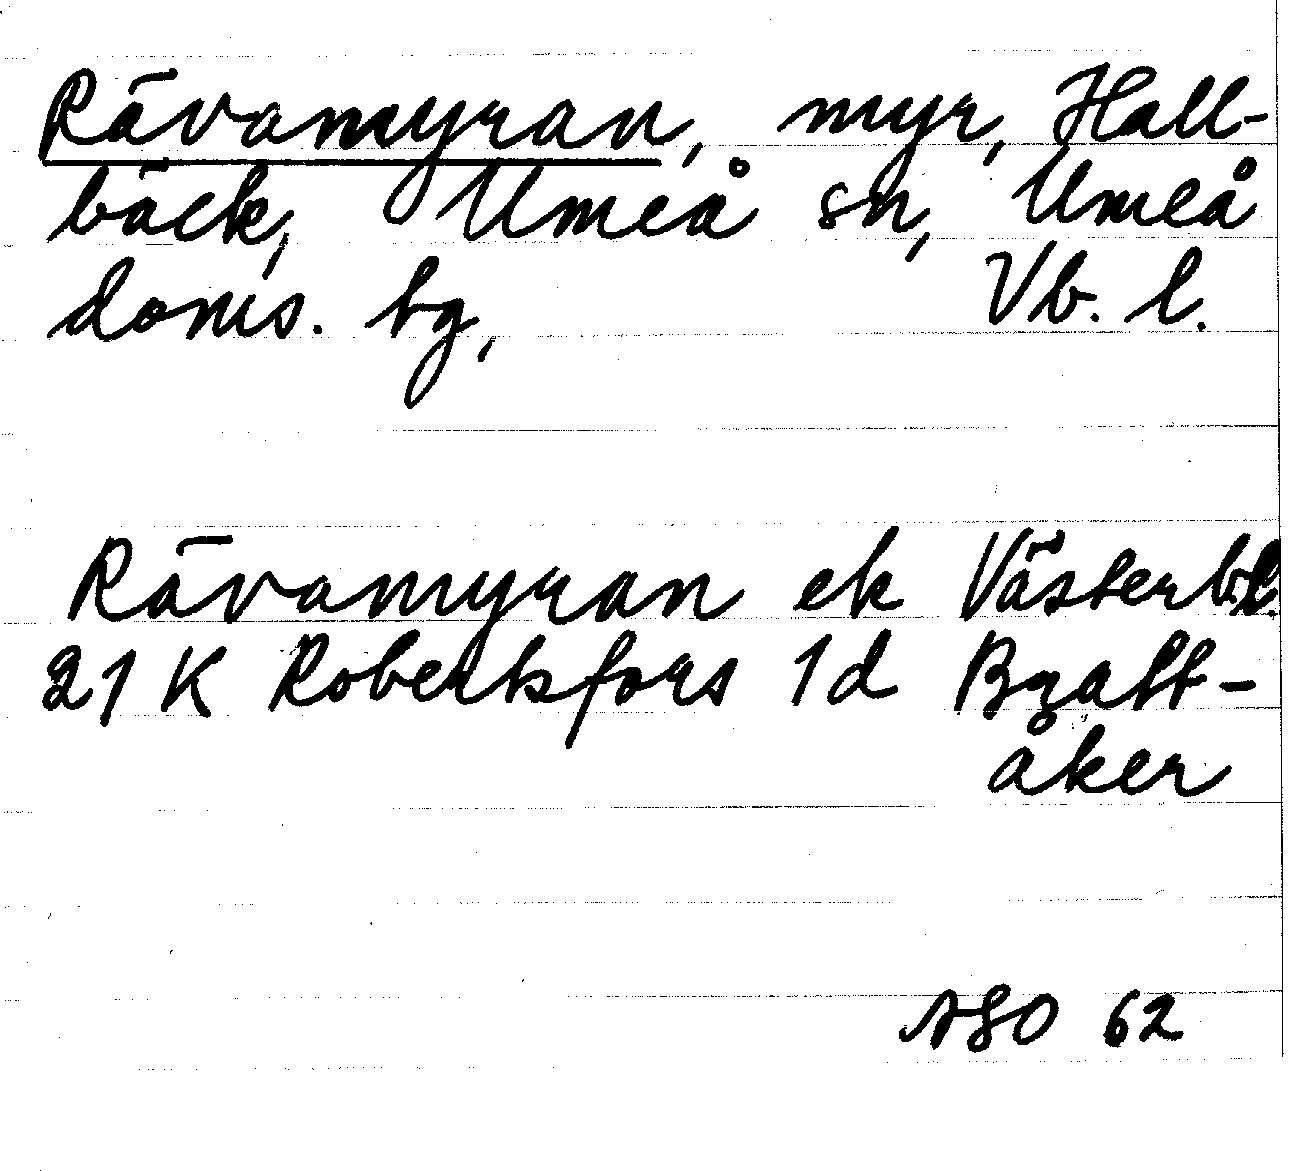 Rävamyran, myr, Hall-
bäck, Umeå sn, Umeå
doms. hg, Vb. l.
Rävamyran ek Västerb.l.
21 K Robertsfors 1d Bratt-
åker
ASO 62